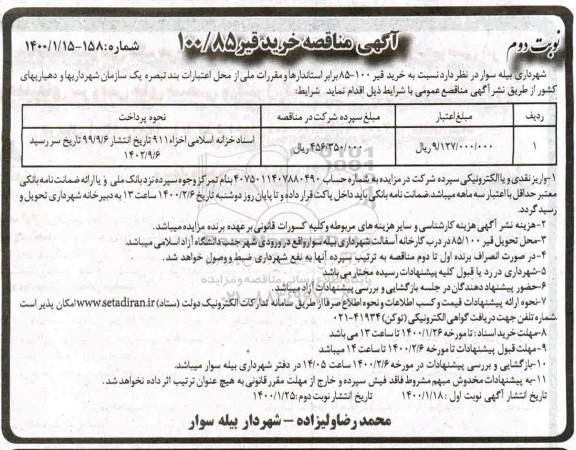 نوبت دوم
آگهی مناقصه خرید قیر ۱۰۰/۸۵
شماره: ۱۵۸-۱۴۰۰/۱/۱۵
شهرداری بیله سوار در نظر دارد نسبت به خرید قیر ۱۰۰-۸۵ برابر استاندارها و مقررات ملی از محل اعتبارات بند تبصره یک سازمان شهرداریها و دهیاریهای
کشور از طریق نشر آگهی مناقصع عمومی با شرایط ذیل اقدام نماید شرایط:
ردیف | مبلغ اعتبار | مبلغ سپرده شرکت در مناقصه | نحوه پرداخت
۱ | ۹/۱۲۷/۰۰۰/۰۰۰ ریال | ۴۵۶/۳۵۰/۰۰۰ ریال | اسناد خزانه اسلامی اخزاء ۹۱۱ تاریخ انتشار ۹۹/۹/۶ تاریخ سررسید
۱۴۰۲/۹/۶
۱-واریز نقدی و یا الکترونیکی سپرده شرکت در مزایده به شماره حساب ۴۰۷۵۰۱۱۴۰۷۸۸۰۴۹۰ بنام تمرکز وجوه سپرده نزد بانک ملی و یا ارائه ضمانت نامه بانکی
معتبر حداقل با اعتبار سه ماهه میباشد.ضمانت نامه بانکی باید داخل پاکت قرار داده و تا پایان روز دوشنبه تاریخ ۱۴۰۰/۲/۶ تا ساعت ۱۳ به دبیرخانه شهرداری تحویل و
رسید گردد.
۲-هزینه نشر آگهی هزینه کارشناسی و سایر هزینه های مربوطه و کلیه کسورات قانونی بر عهده برنده مزایده میباشد.
۳-محل تحویل قیر ۸۵/۱۰۰ در درب کارخانه آسفالت شهرداری بیله سوار واقع در ورودی شهر جنب دانشگاه آزاد اسلامی میباشد.
۴- در صورت انصراف برنده اول تا دوم مناقصه به ترتیب سپرده آنها به نفع شهرداری ضبط و وصول خواهد شد.
۵-شهرداری در رد یا قبول کلیه پیشنهادات رسیده مختار می باشد
۶-حضور پیشنهاد دهندگان در جلسه بازگشایی و بررسی پیشنهادات آزاد میباشد.
۷-نحوه ارائه پیشنهادات قیمت و کسب اطلاعات و نحوه اطلاع صرفا از طریق سامانه تدارکات الکترونیک دولت (ستاد) www.setadiran.ir امکان پذیر است
شماره تلفن جهت دریافت گواهی الکترونیکی (توکن) ۴۱۹۳۴-۰۲۱
۸-مهلت خرید اسناد : تا مورخه ۱۴۰۰/۱/۲۶ تا ساعت ۱۳ می باشد
۹-مهلت قبول پیشنهادات تا مورخه ۱۴۰۰/۲/۶ تا ساعت ۱۴ میباشد
۱۰-بازگشایی و بررسی پیشنهادات در مورخه ۱۴۰۰/۲/۶ ساعت ۱۴/۰۵ در دفتر شهرداری بیله سوار میباشد.
۱۱-به پیشنهادات مخدوش مبهم مشروط فاقد فیش سپرده و خارج از مهلت مقرر قانونی به هیچ عنوان ترتیب اثر داده نخواهد شد.
تاریخ انتشار آگهی نوبت اول : ۱۴۰۰/۱/۱۸ تاریخ انتشار نوبت دوم :۱۴۰۰/۱/۲۵
محمدرضا ولیزاده - شهردار بیله سوار